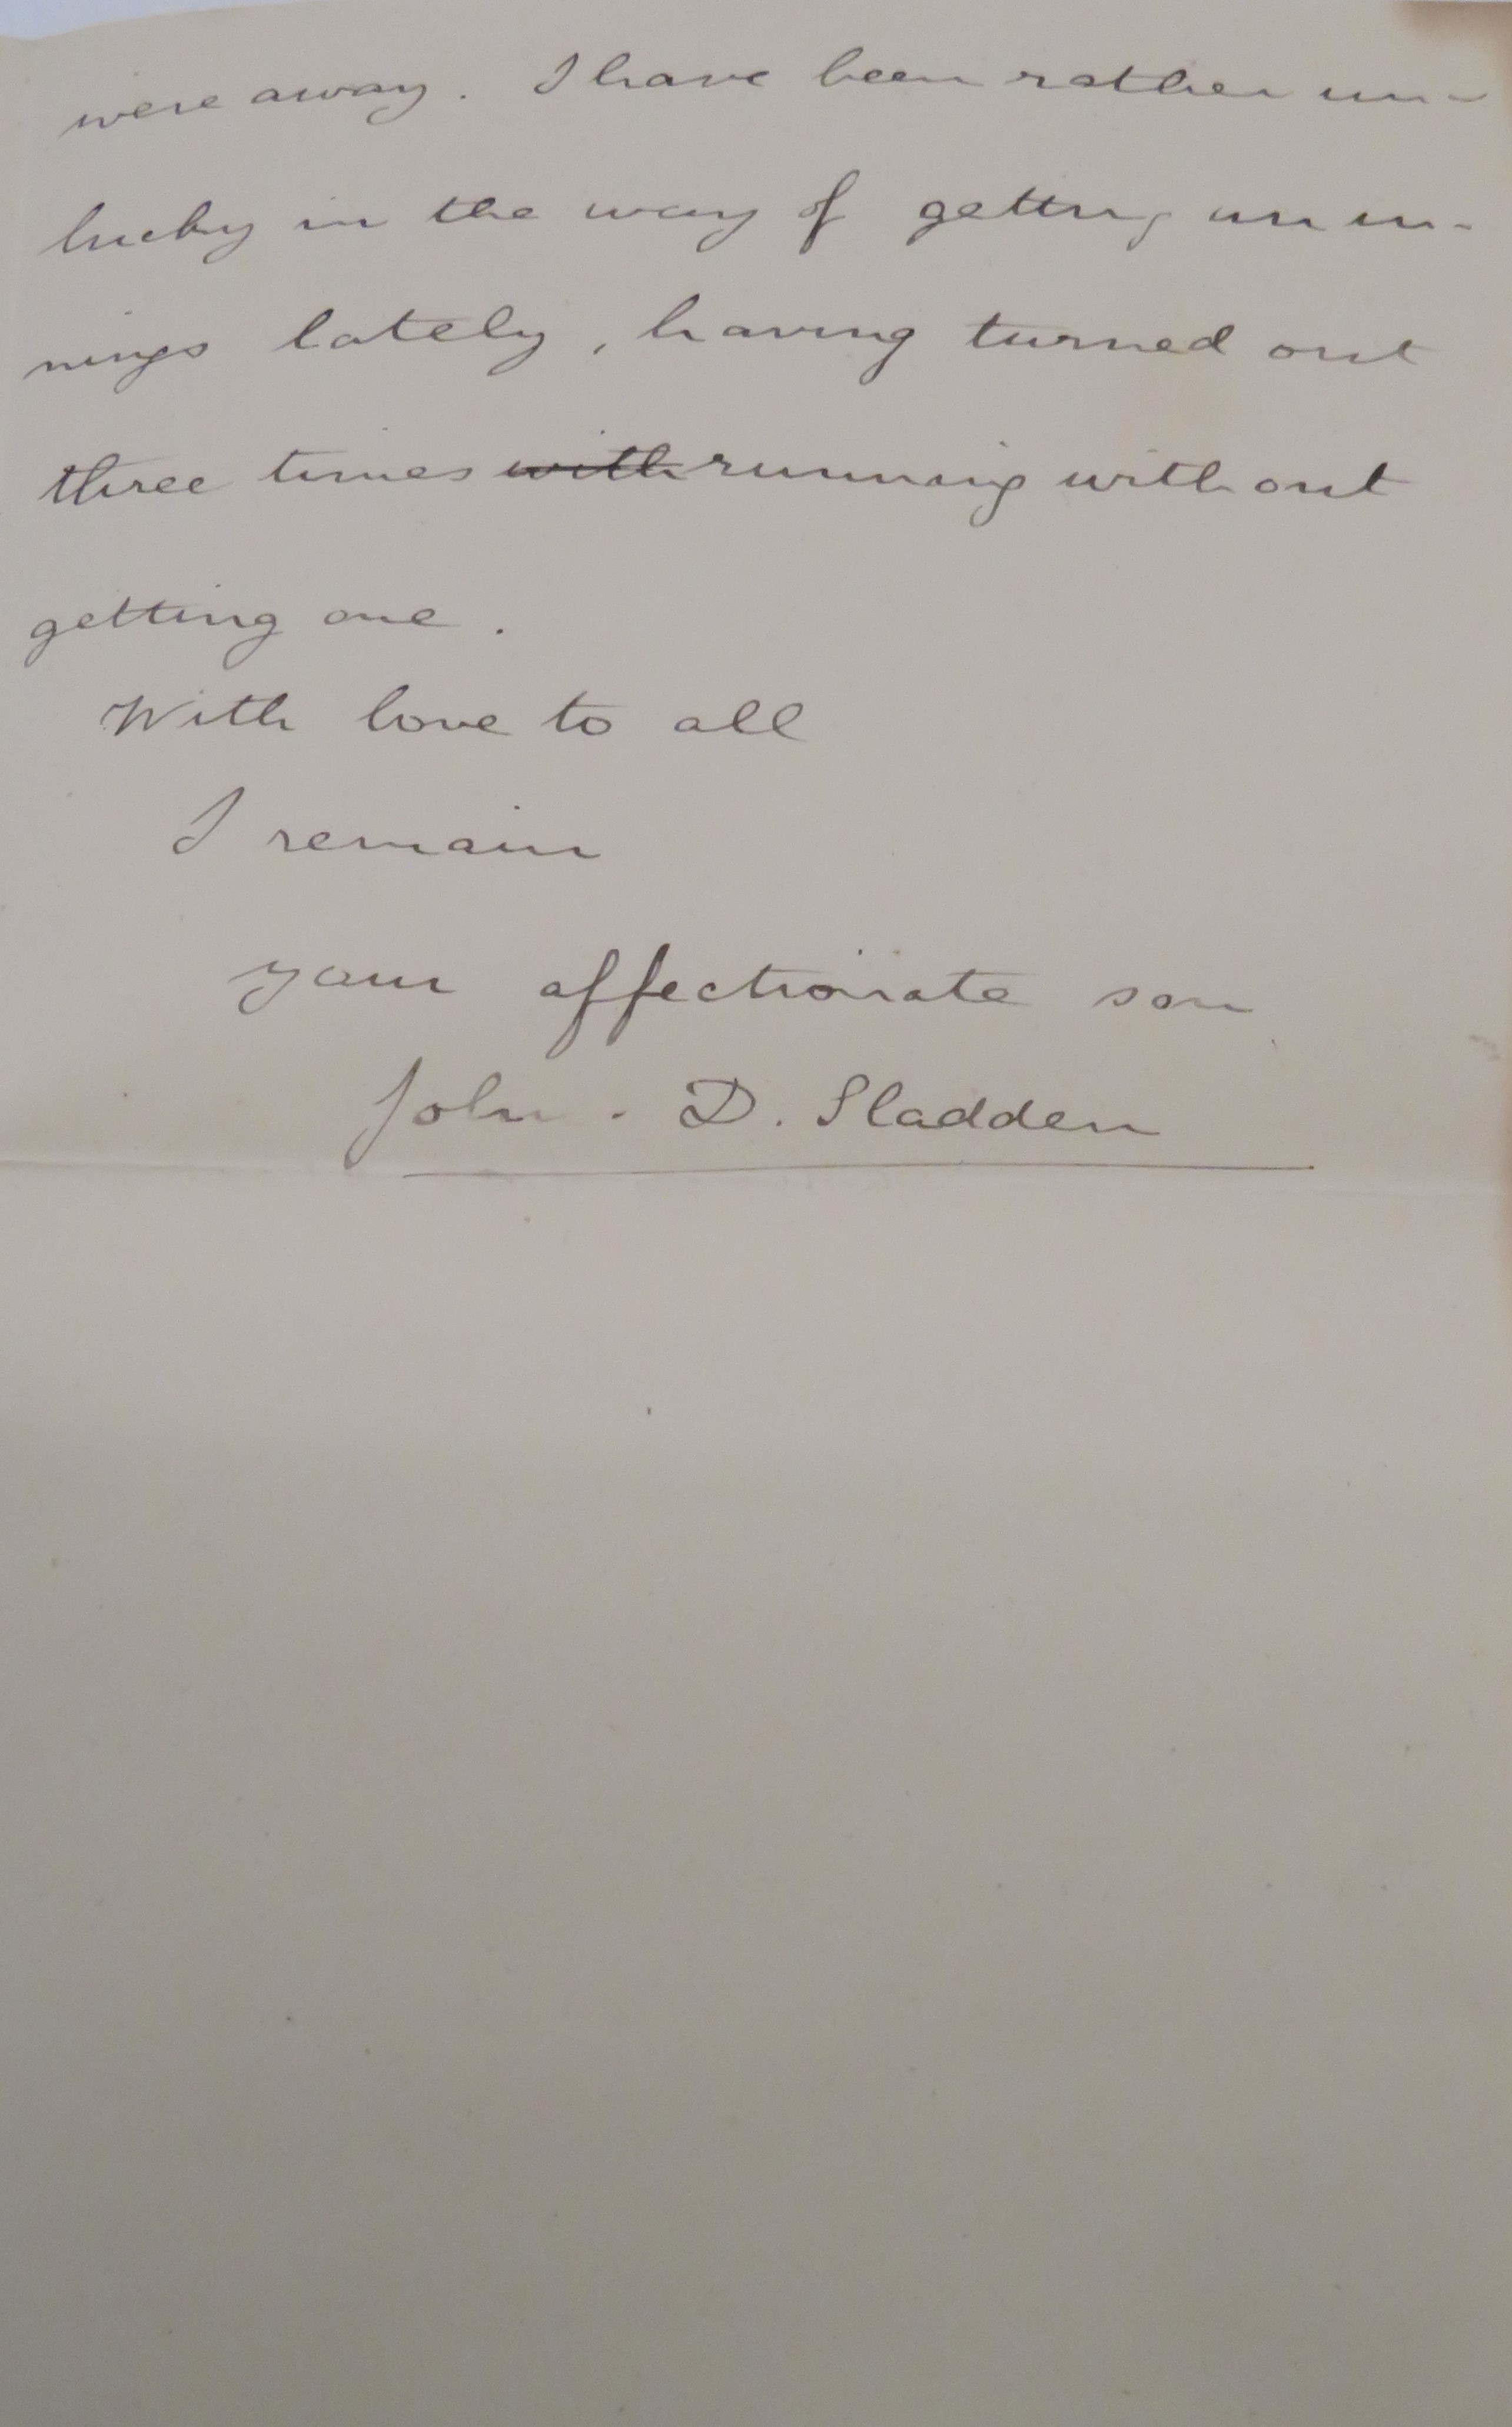 were away. I have been rather un-
lucky in the way of getting an in-
nings lately, having turned out
three times with running without
getting one.
With love to all
I remain
your affectionate son
John. D. Sladden